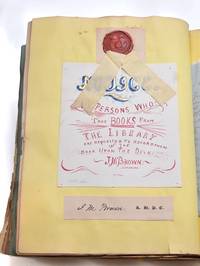 NOTICE.
PERSONS WHO
TAKE BOOKS FROM
THE LIBRARY
ARE REQUESTED TO
IN THE
BOOK UPON THE DESK
J.M. BROWN
J. M. Brown